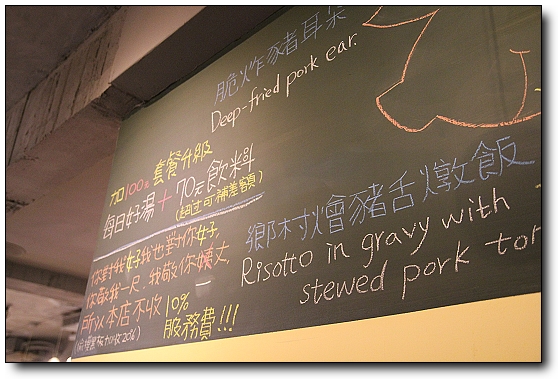 脆炸豬耳朵
Deep-fried pork ear.
加100元 套餐升級
每日好湯 + 70元飲料
(超过可補差額)
鄉村燴豬舌燉飯
Risotto in gravy with
stewed pork ton
你對我好我也對你好,
你敬我一尺.我敬你一丈,
所以本店不收10%
服務費!!!